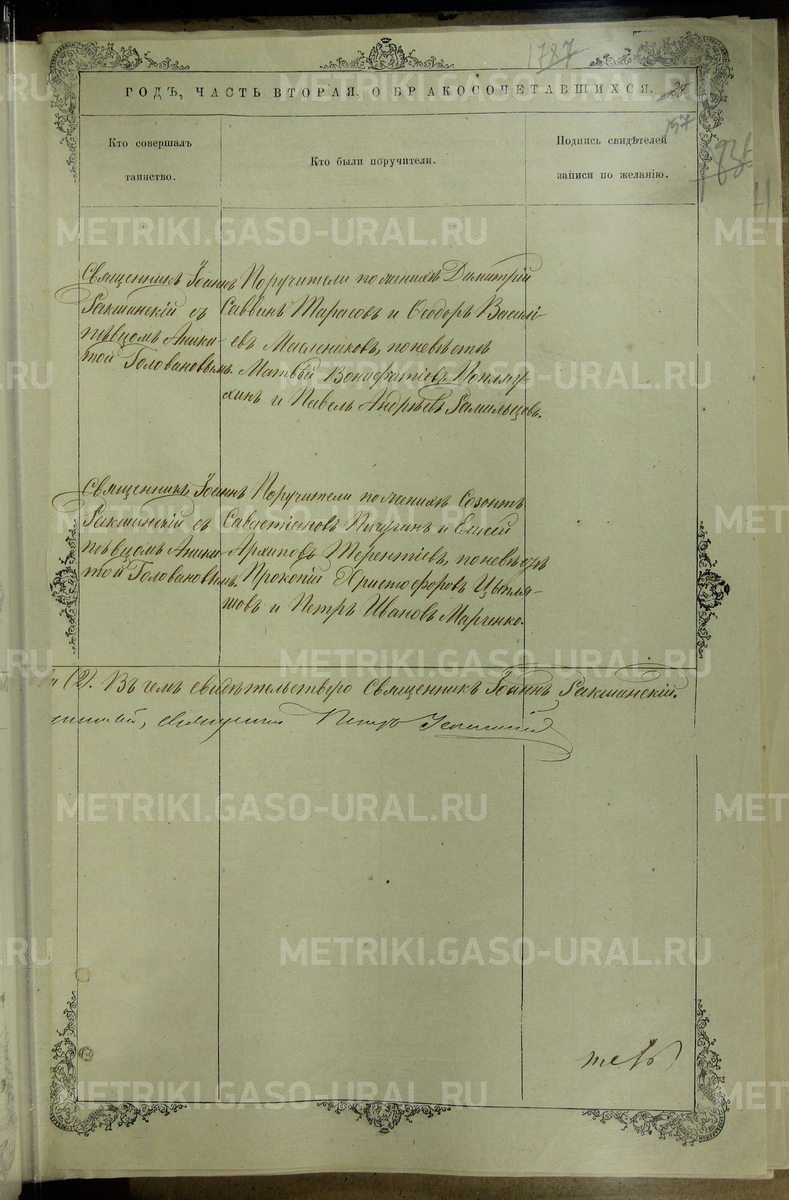 1787
ГОДЪ, ЧАСТЬ ВТОРАЯ, О БРАКОСОЧЕТАВШИХСЯ.
157
Кто совершалъ
таинство.
Кто были поручители.
Подпись свидѣтелей
записи по желанію.
Священникъ Іоаннъ
Ракшинскій съ
пѣвцомъ Аники-
той Головановымъ
Поручители по женихѣ Димитрій
Саввинъ Тарасовъ и Ѳеодоръ Василі-
евъ Маслениковъ, по невѣстѣ
Матвѣй Вонифатіевъ
и Павелъ Андреевъ
Священникъ Іоаннъ
Ракшинскій съ
пѣвцомъ Аники-
той Головановымъ
Поручители по женихѣ Созонтъ
Савастіановъ Пичугинъ и Елисей
Архиповъ Терентіевъ, по невѣстѣ
Прокопій Христофоровъ Цыпля-
шовъ и Петръ Ивановъ Марченко.
Въ чемъ свидѣтельствую Священникъ Іоаннъ Ракшинскій.
Петръ
METRIKI.GASO-URAL.RU